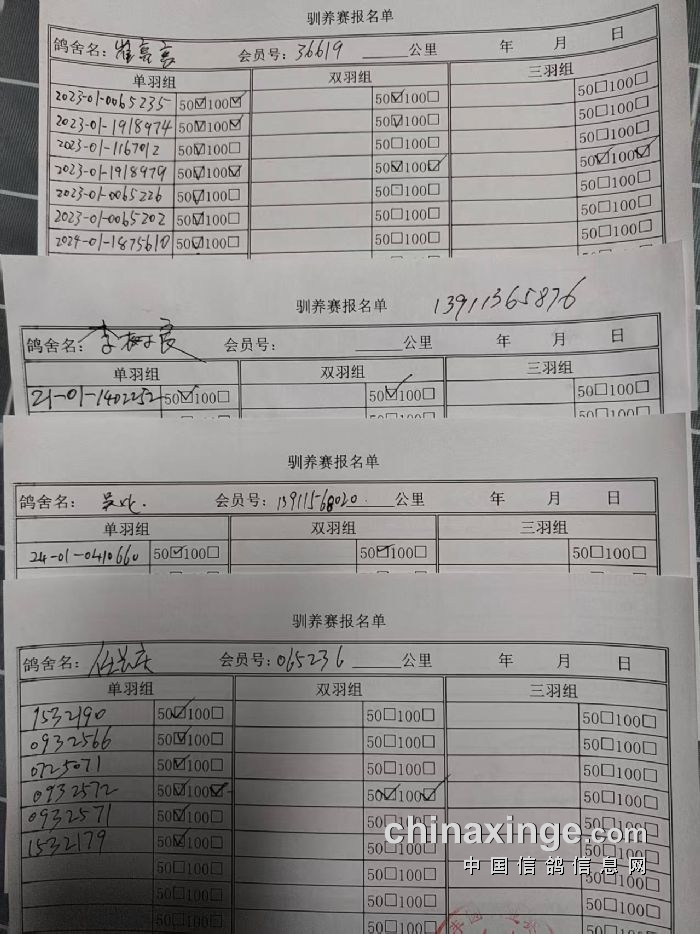 驯养赛报名单
鸽舍名： 会员号：36619 公里 年 月 日
单羽组 双羽组 三羽组
2023-01-0065235 50☑100☑ 50☑100☐ 50☐100☐
2023-01-1918974 50☑100☑ 50☑100☐ 50☐100☐
2023-01-1167012 50☑100☐ 50☐100☐ 50☐100☐
2023-01-1918979 50☑100☑ 50☑100☑ 50☑100☑
2023-01-0065226 50☑100☐ 50☐100☐ 50☐100☐
2023-01-0065202 50☑100☐ 50☐100☐ 50☐100☐
2024-01-1875610 50☑100☐ 50☐100☐ 50☐100☐
驯养赛报名单 13911365876
鸽舍名： 会员号： 公里 年 月 日
单羽组 双羽组 三羽组
21-01-1402252 50☑100☐ 50☑100☐ 50☐100☐
驯养赛报名单
鸽舍名： 会员号：13911568020 公里 年 月 日
单羽组 双羽组 三羽组
24-01-0410660 50☑100☐ 50☑100☐ 50☐100☐
驯养赛报名单
鸽舍名：任长庆 会员号：065236 公里 年 月 日
单羽组 双羽组 三羽组
1532190 50☑100☐ 50☐100☐ 50☐100☐
0932566 50☑100☐ 50☐100☐ 50☐100☐
0725071 50☑100☐ 50☐100☐ 50☐100☐
0932572 50☑100☑ 50☑100☑ 50☐100☐
0932571 50☑100☐ 50☐100☐ 50☐100☐
1532179 50☑100☐ 50☐100☐ 50☐100☐
50☐100☐ 50☐100☐ 50☐100☐
50☐100☐ 50☐100☐ 50☐100☐
50☐100☐ 50☐100☐ 50☐100☐
chinaxinge.com
中国信鸽信息网